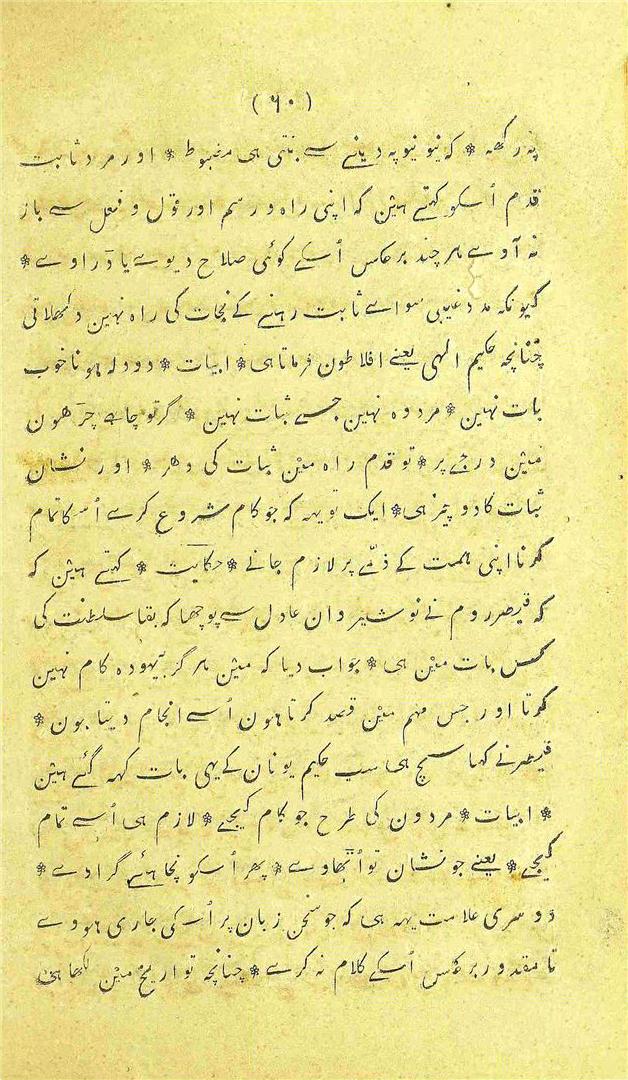 (٦٠)
پر رکھہ * کہ نیو نیو پہ دینے سے بنتی ہی مضبوط * اور مرد ثابت
قدم اُسکو کہتے ہیٖن کہ اپنی راہ و رسم اور قول و فعل سے باز
نہ آوے ہر چند برعکس اُسکے کوئی صلاح دیوے یا ڈراوے *
کیونکہ مدد غیبی سواے ثابت رہنے کے نجات کی راہ نہین دکھلاتی
چُنانچہ حکیم الٰہی یعنے افلاطون فرماتا ہی * ابیات * دودلہ ہونا خوب
بات نہین * مرد وہ نہین جسے ثبات نہین * گر تو چاہے چڑھون
میٖن درجے پر * تو قدم راہ میٖن ثبات کی دھر * اور نشان
ثبات کا دو چیز ہی * ایک تو یہہ کہ جو کام شروع کرے اُسکا تمام
کرنا اپنی ہمت کے ذمّے پر لازم جانے * حکایت * کہتے ہیٖن کہ
کہ قیصر روم نے نوشیروان عادل سے پوچھا کہ بقا سلطنت کی
کس بات میٖن ہی * جواب دیا کہ میٖن ہرگز بیہودہ کام نہین
کرتا اور جس مہم میٖن قصد کرتا ہون اُسے انجام دیتا ہون *
قیصر نے کہا سچ ہی سب حکیم یونان کے یہی بات کہہ گئے ہیٖن
* ابیات * مردون کی طرح جو کام کیجے * لازم ہی اُسے تمام
کیجے * یعنے جو نشان تو اُٹھاوے * پھر اُسکو نچاہئے گرادے *
دوسری علامت یہہ ہی کہ جو سخن زبان پر اُسکی جاری ہووے
تا مقدور برعکس اُسکے کلام نہ کرے * چنانچہ تواریخ میٖن لکھا ہی